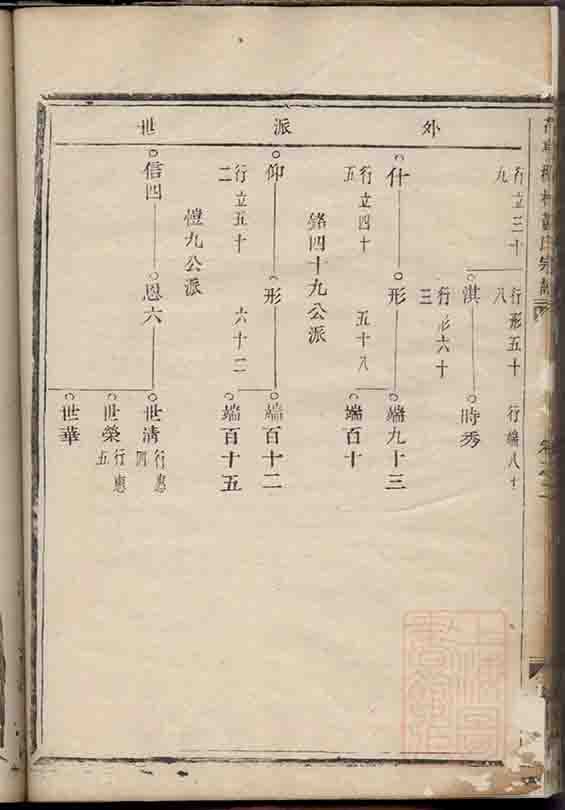 宗譜
外派世
行立三十九
行形五十八
行端八十
淇
時秀
行形六十三
什
形
端九十三
行立四十五
五十八
端百十
銘四十九公派
仰
形
端百十二
行立五十二
六十二
端百十五
愷九公派
信四
恩六
世清
行惠四
世榮
行惠五
世華